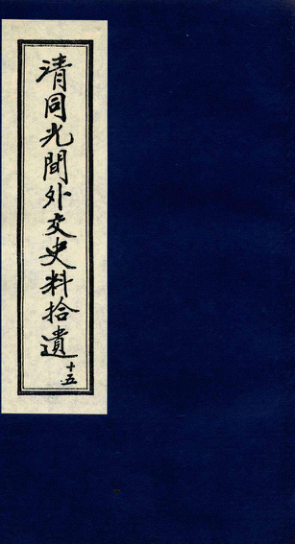 清同光間外交史料拾遺
十五